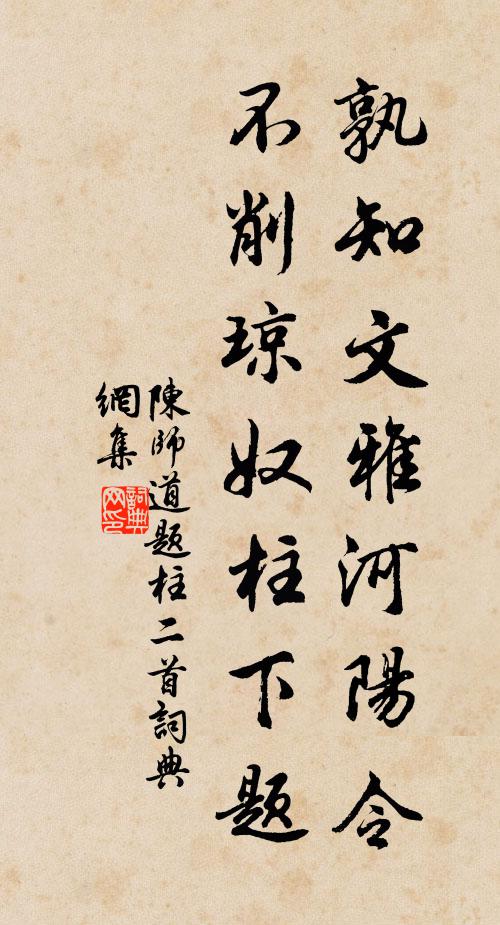 孰知文雅河陽令
不削琼奴柱下题
陳師道题柱二首詞典
網集
詞典網印